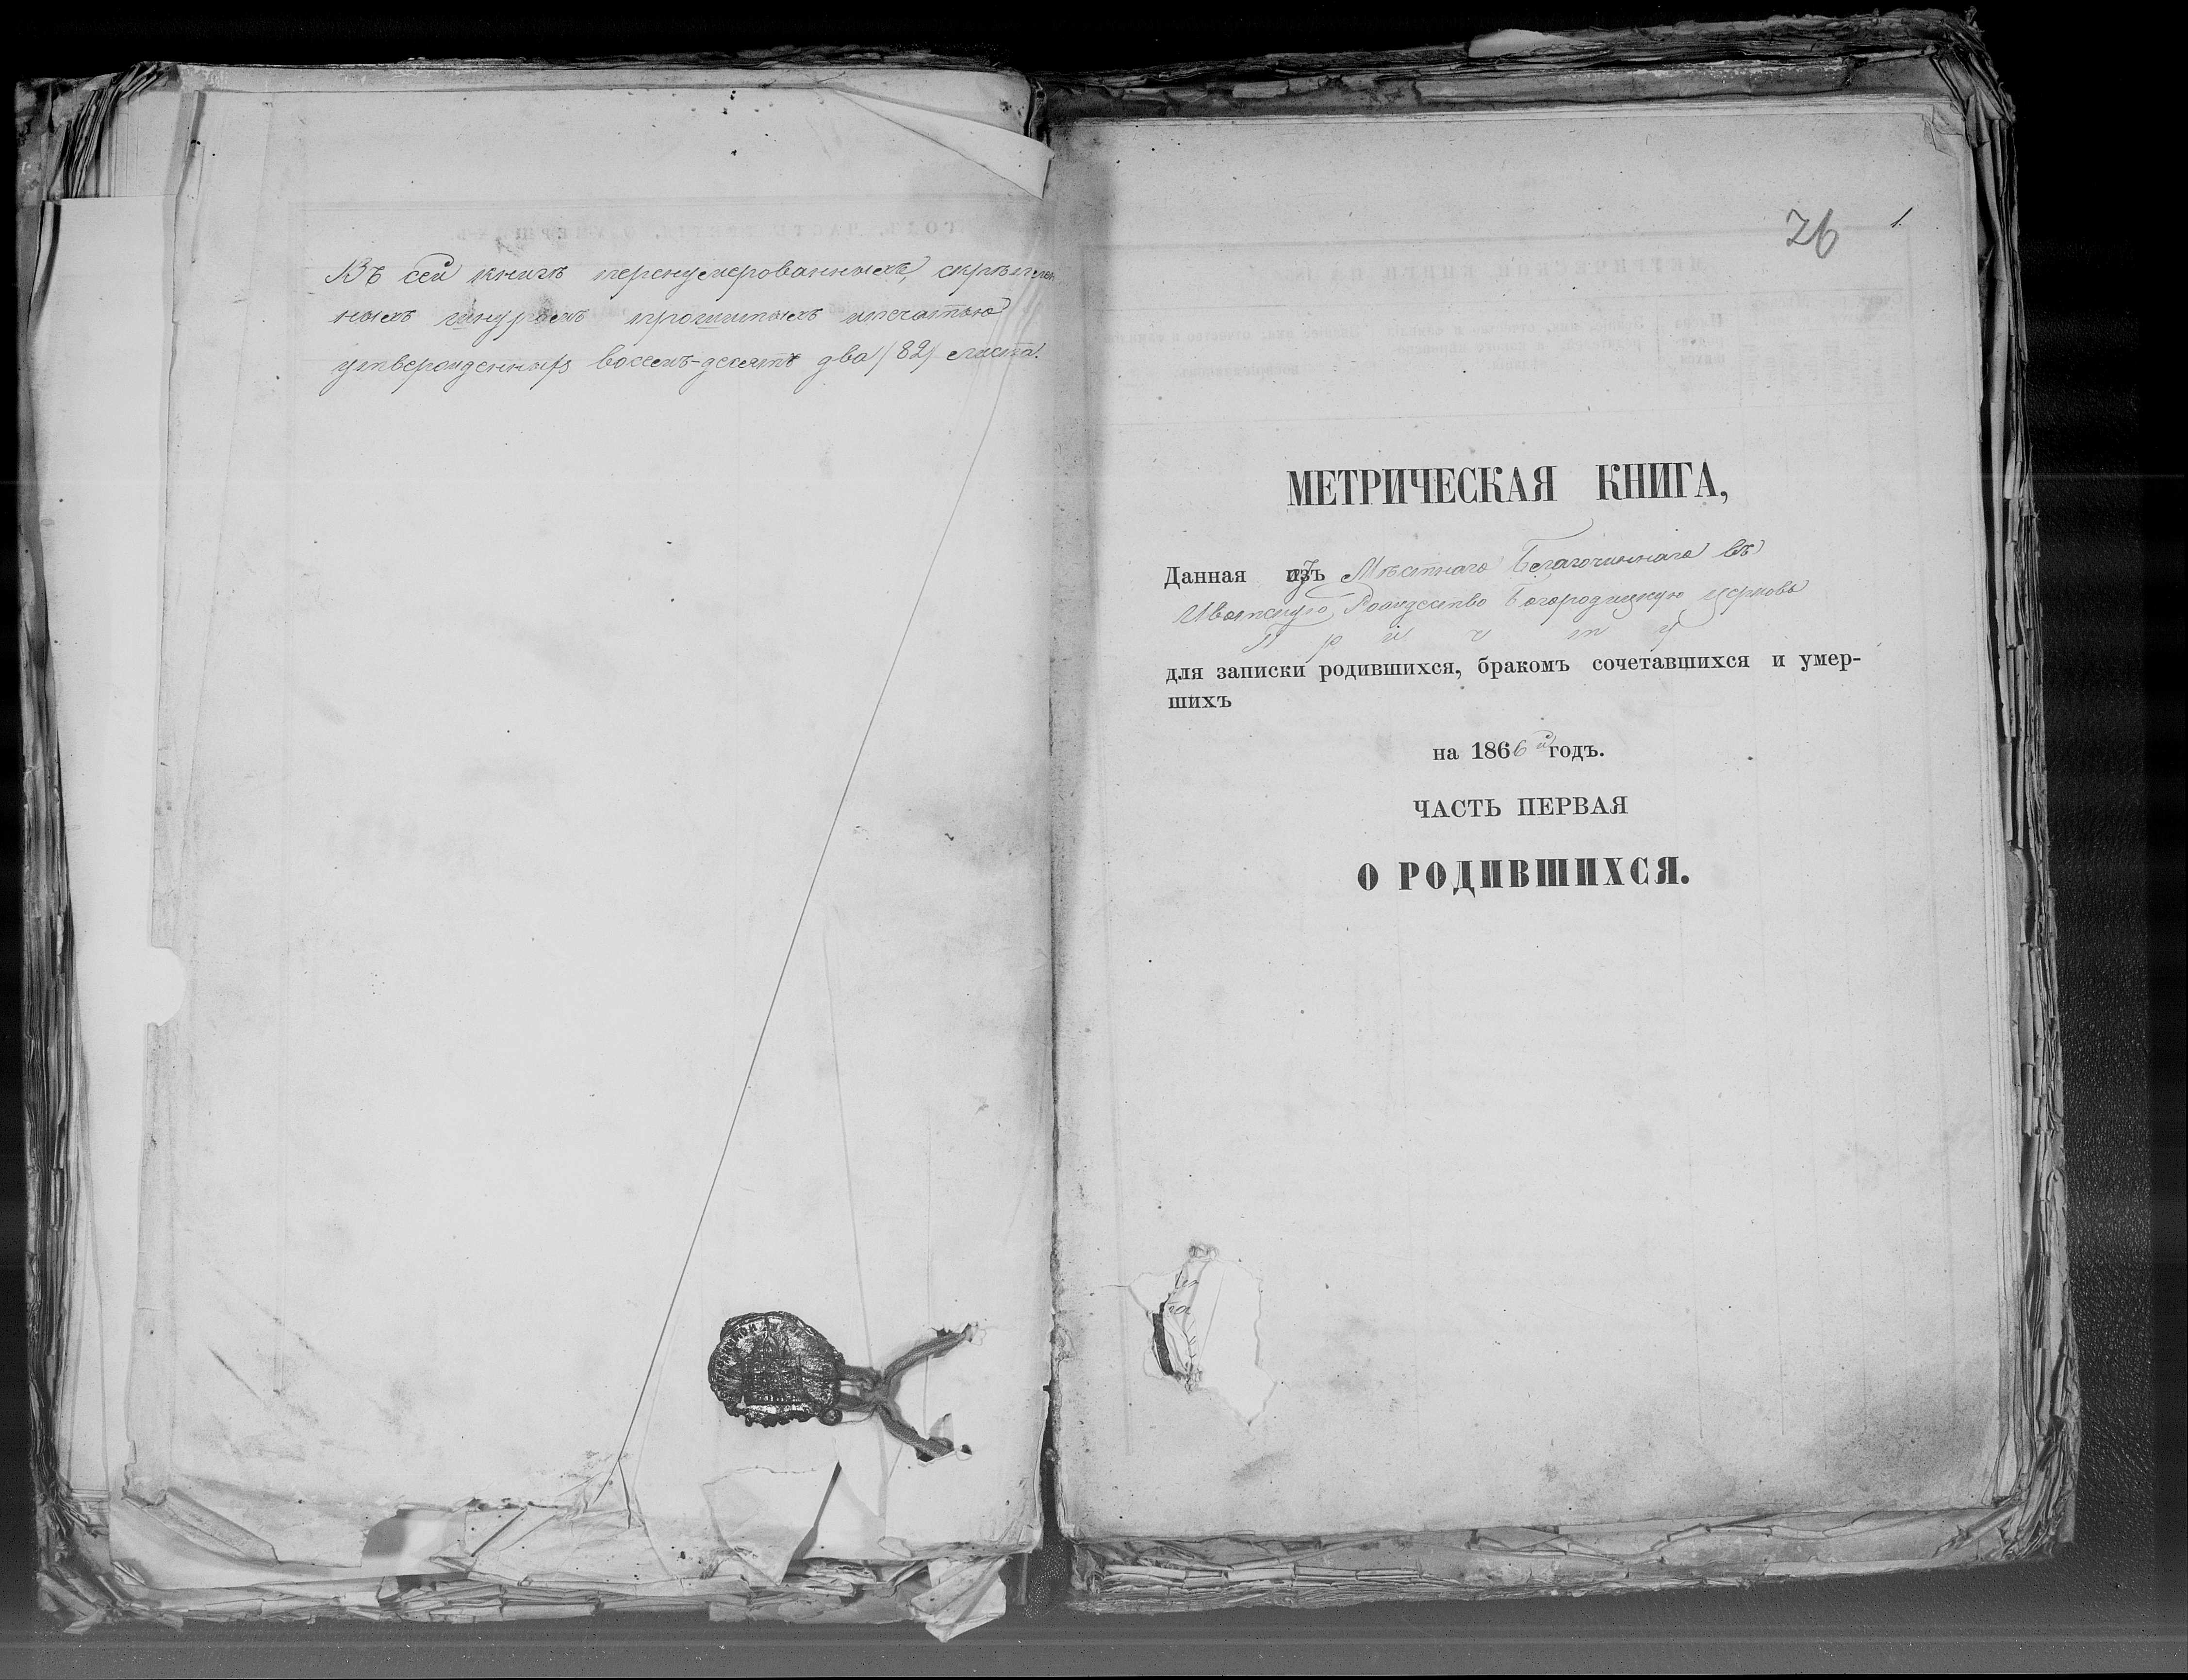 Въ сей книгѣ перенумерованныхъ, скрѣплен
ныхъ шнуромъ прошитыхъ печатью
утвержденныхъ восемь-десятъ два /82/ листа.
26 1.
МЕТРИЧЕСКАЯ КНИГА,
Данная изъ Мѣстнаго Благочиннаго въ
Ивотскую Рождество Богородицкую церковь
Причту
для записки родившихся, бракомъ сочетавшихся и умер-
шихъ
на 1866й годъ.
ЧАСТЬ ПЕРВАЯ
О РОДИВШИХСЯ.